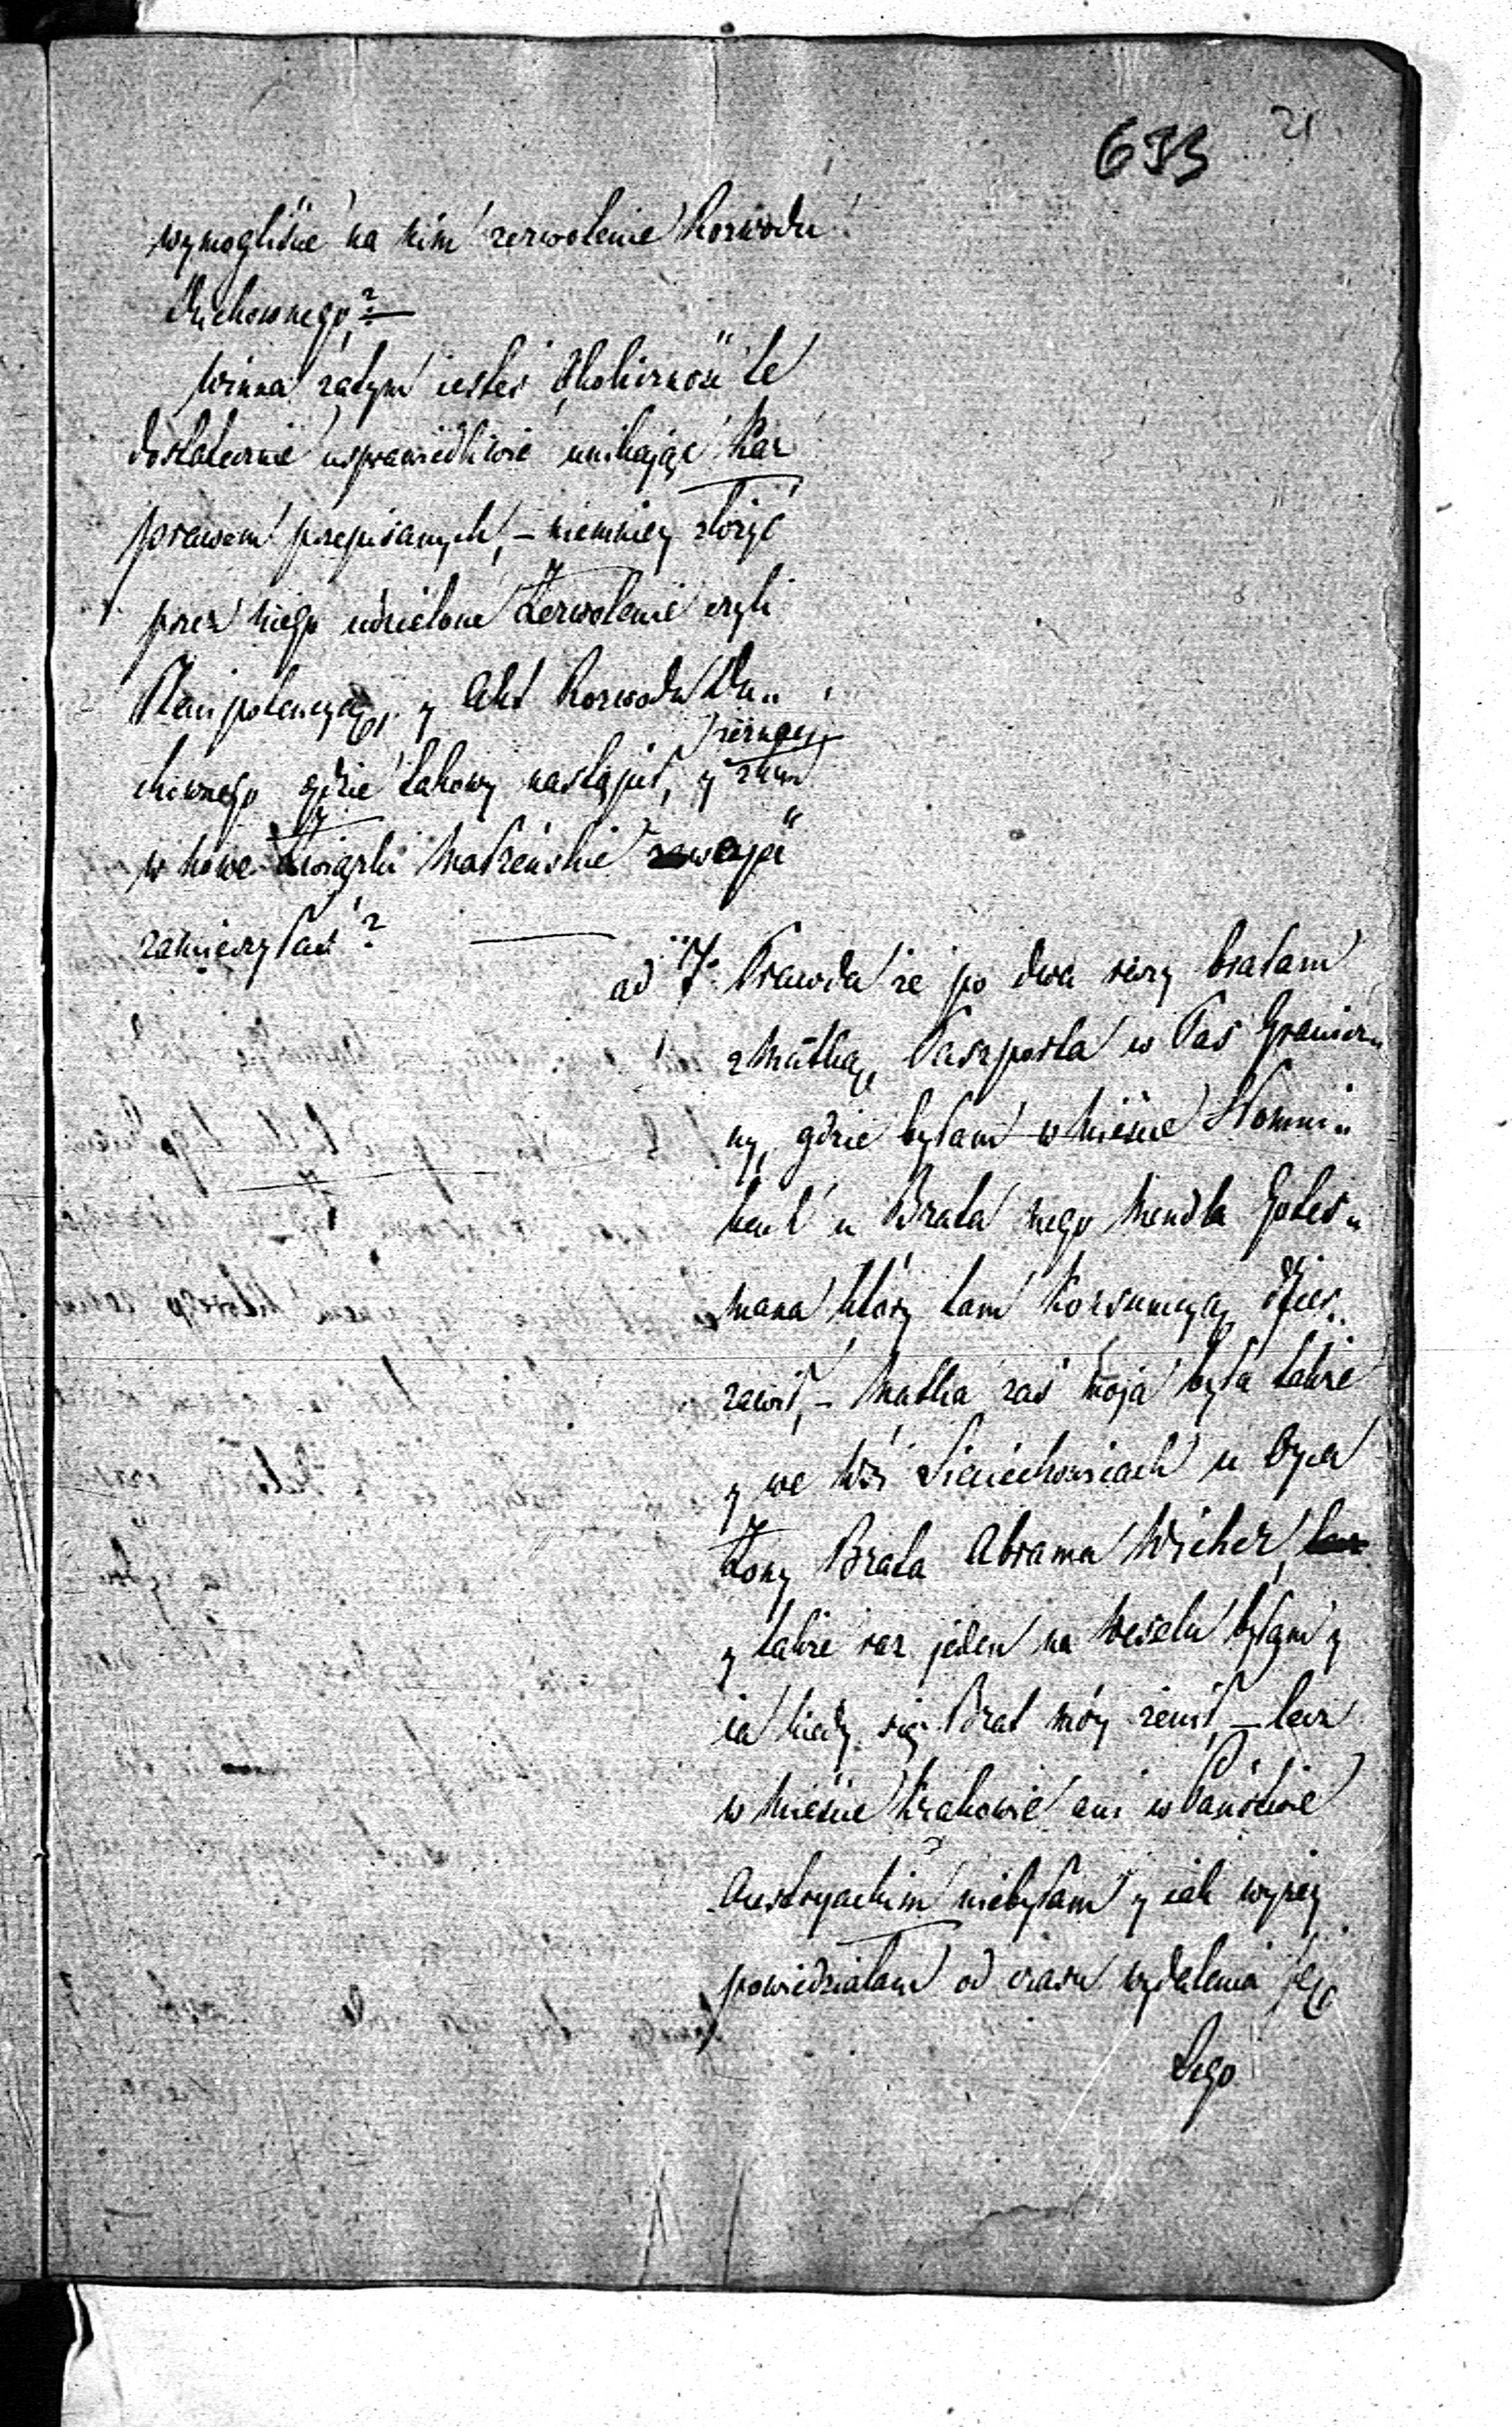 633 21
wymogliście na nim zezwolenie Rozwodu
Duchownego?—
Winna zatym iesteś Okoliczność te
dostatecznie usprawiedliwić unikając Kar
prawem przepisanych, – niemniey złożyć
przez niego udzielone Zezwolenie czyli
Plenipotencyą, y Akt Rozwodu Du„
chownego gdzie takowy nastąpił, y
w nowe Związki Małżeńskie
zamierzyłaś? —
ad 7. Prawda że po dwa razy brałam
z Matką, Paszporta w Pas Granicz„
ny, gdzie byłam w Mieście Słomni„
kach u Brata mego Mendla Goles„
mana który tam Konsumcyą dzier„
żawił, – Matka zaś moja była także
y we Wsi Sieciechowicach u Oyca
Żony Brata Abrama Wicher,
y także raz jeden na Weselu byłam y
ia kiedy się Brat móy żenił, – lecz
w Mieście Krakowie ani w Państwie
Austryackim niebyłam y iak wyżey
powiedziałam od czasu wydalenia się
Lego